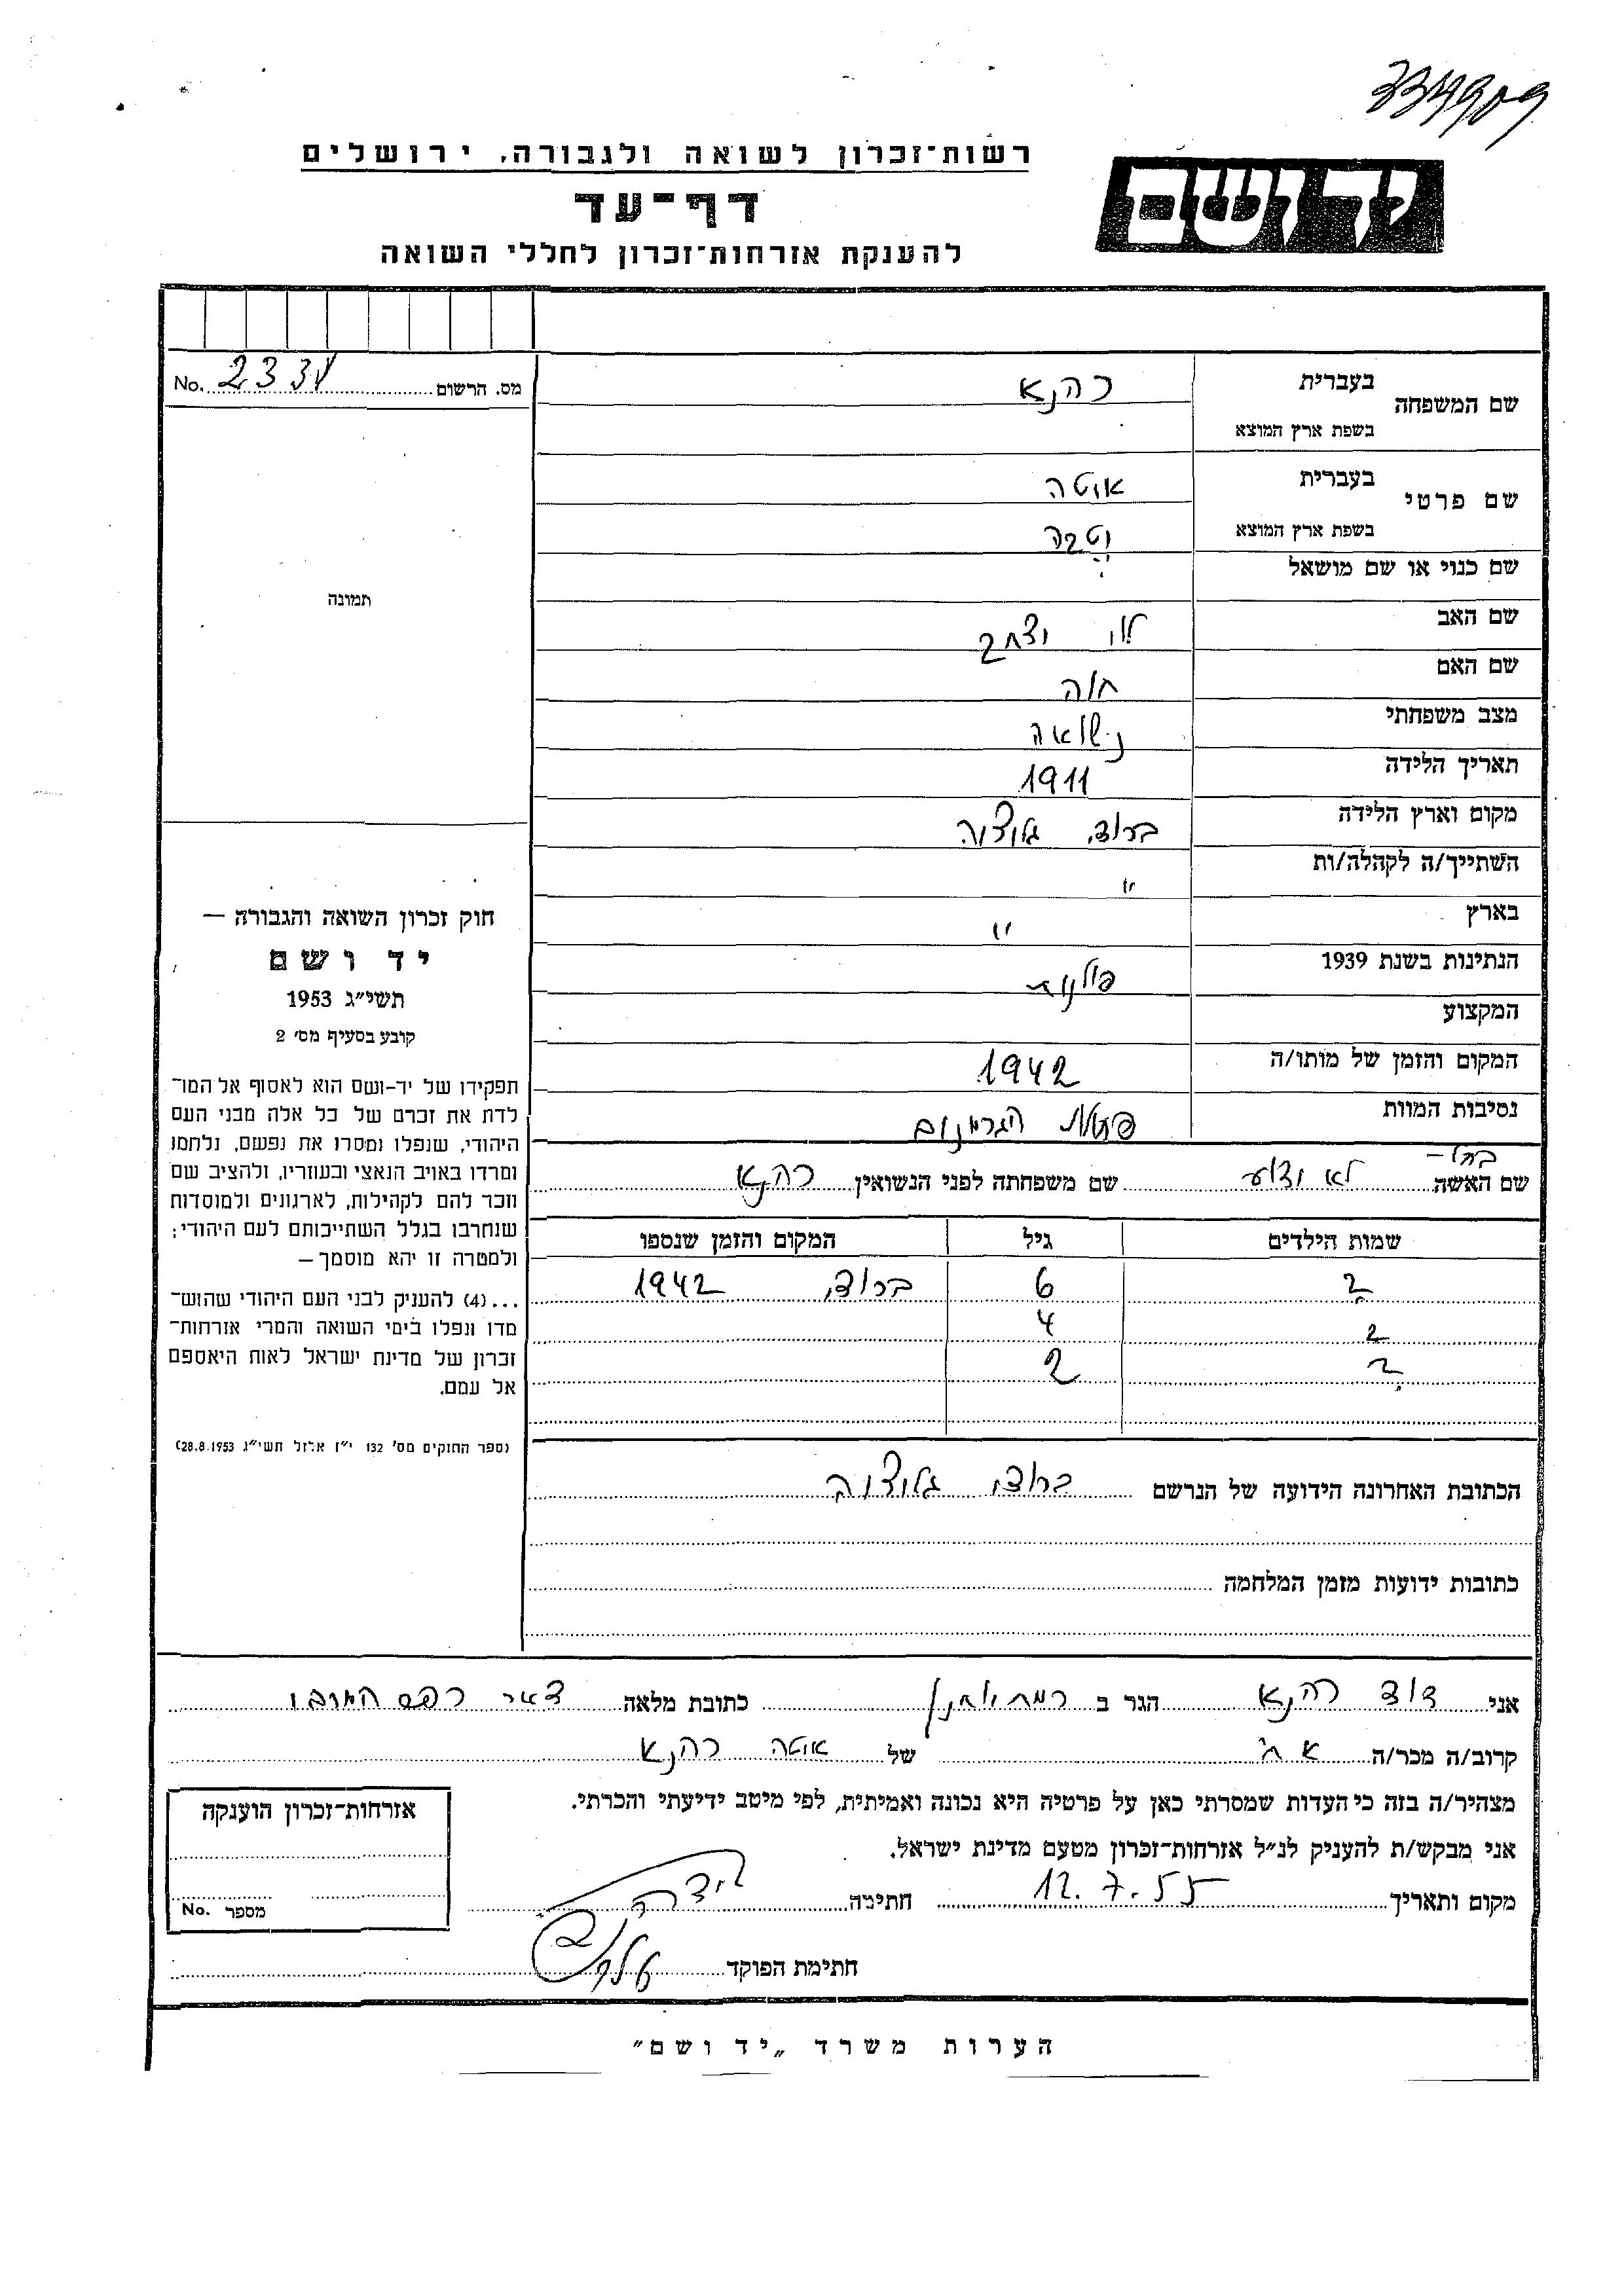 334909
רשות־זכרון לשואה ולגבורה, ירושלים
יד ושם
דף־עד
להענקת אזרחות־זכרון לחללי השואה
מס. הרשום No. 233
שם המשפחה
בעברית כהנא
בשפת ארץ המוצא
שם פרטי
בעברית אוטה
בשפת ארץ המוצא
שם כנוי או שם מושאל
שם האב לוי יצחק
שם האם חוה
מצב משפחתי נשואה
תאריך הלידה 1911
מקום וארץ הלידה ברוד, גליציה
השתייך/ה לקהלה/ות "
בארץ "
הנתינות בשנת 1939 פולנית
המקצוע
המקום והזמן של מותו/ה 1942
נסיבות המוות הגרמנים
שם האשה לא ידוע שם משפחתה לפני הנשואין כהנא
שמות הילדים גיל המקום והזמן שנספו
? 6 ברוד, 1942
? 4
? 2
הכתובת האחרונה הידועה של הנרשם ברוד, גליציה
כתובות ידועות מזמן המלחמה
תמונה
חוק זכרון השואה והגבורה —
יד ושם
תשי״ג 1953
קובע בסעיף מס׳ 2
תפקידו של יד-ושם הוא לאסוף אל המו־
לדת את זכרם של כל אלה מבני העם
היהודי, שנפלו ומסרו את נפשם, נלחמו
ומרדו באויב הנאצי ובעוזריו, ולהציב שם
וזכר להם לקהילות, לארגונים ולמוסדות
שנחרבו בגלל השתייכותם לעם היהודי;
ולמטרה זו יהא מוסמך —
...(4) להעניק לבני העם היהודי שהוש־
מדו ונפלו בימי השואה והמרי אזרחות־
זכרון של מדינת ישראל לאות היאספם
אל עמם.
(ספר החוקים מס׳ 132 י״ז אלול תשי״ג 28.8.1953)
אני דוד כהנא הגר ב רמת יוחנן כתובת מלאה דאר כפר המכבי
קרוב/ה מכר/ה אח של אוטה כהנא
מצהיר/ה בזה כי העדות שמסרתי כאן על פרטיה היא נכונה ואמיתית, לפי מיטב ידיעתי והכרתי.
אני מבקש/ת להעניק לנ״ל אזרחות־זכרון מטעם מדינת ישראל.
מקום ותאריך 12.7.55 חתימה
חתימת הפוקד
אזרחות־זכרון הוענקה
מספר No.
הערות משרד „יד ושם״